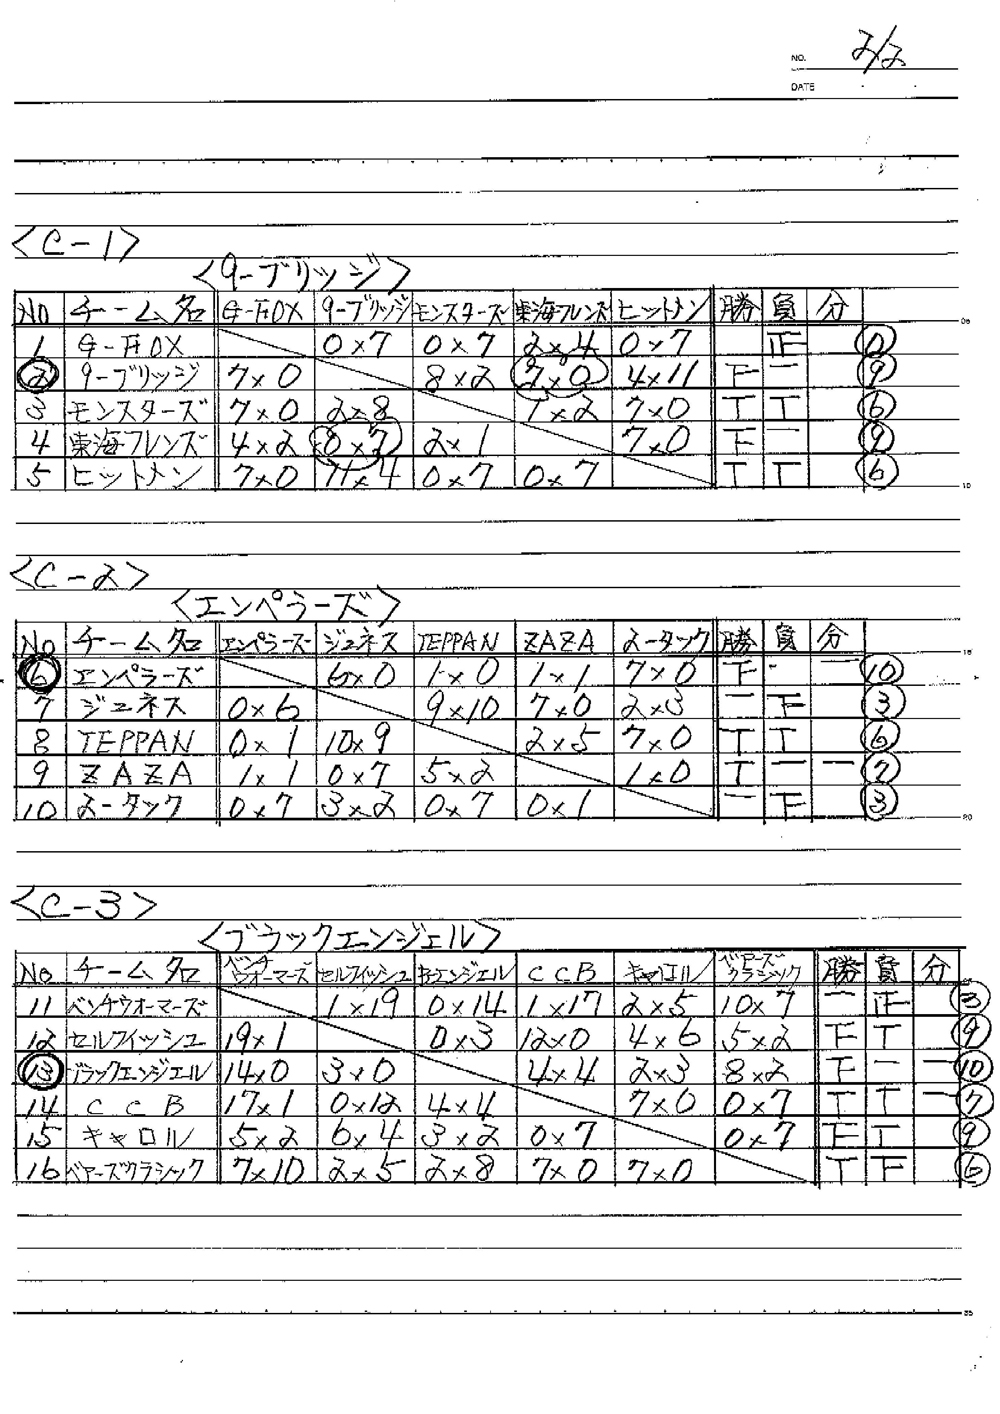 NO. 2/2
DATE
<C-1>
<9-ブリッジ>
No チーム名 G-FOX 9-ブリッジ モンスターズ 東海フレンズ ヒットメン 勝 負 分
1 G-FOX 0×7 0×7 2×4 0×7 正 0
2 9-ブリッジ 7×0 8×2 7×0 4×11 下 一 9
3 モンスターズ 7×0 2×8 1×2 7×0 T T 6
4 東海フレンズ 4×2 0×7 2×1 7×0 下 一 9
5 ヒットメン 7×0 11×4 0×7 0×7 T T 6
<C-2>
<エンペラーズ>
No チーム名 エンペラーズ ジュネス TEPPAN ZAZA ユータック 勝 負 分
6 エンペラーズ 6×0 1×0 1×1 7×0 下 - 一 10
7 ジュネス 0×6 9×10 7×0 2×3 一 下 3
8 TEPPAN 0×1 10×9 2×5 7×0 T T 6
9 ZAZA 1×1 0×7 5×2 1×0 T 一 一 7
10 ユータック 0×7 3×2 0×7 0×1 一 下 3
<C-3>
<ブラックエンジェル>
No チーム名 ベンチウオーマーズ セルフィッシュ B・エンジェル CCB キャロル ベアーズクラシック 勝 負 分
11 ベンチウオーマーズ 1×19 0×14 1×17 2×5 10×7 一 正 3
12 セルフィッシュ 19×1 0×3 12×0 4×6 5×2 下 T 9
13 ブラックエンジェル 14×0 3×0 4×4 2×3 8×2 下 一 一 10
14 CCB 17×1 0×12 4×4 7×0 0×7 T T 一 7
15 キャロル 5×2 6×4 3×2 0×7 0×7 下 T 9
16 ベアーズクラシック 7×10 2×5 2×8 7×0 7×0 T 下 6